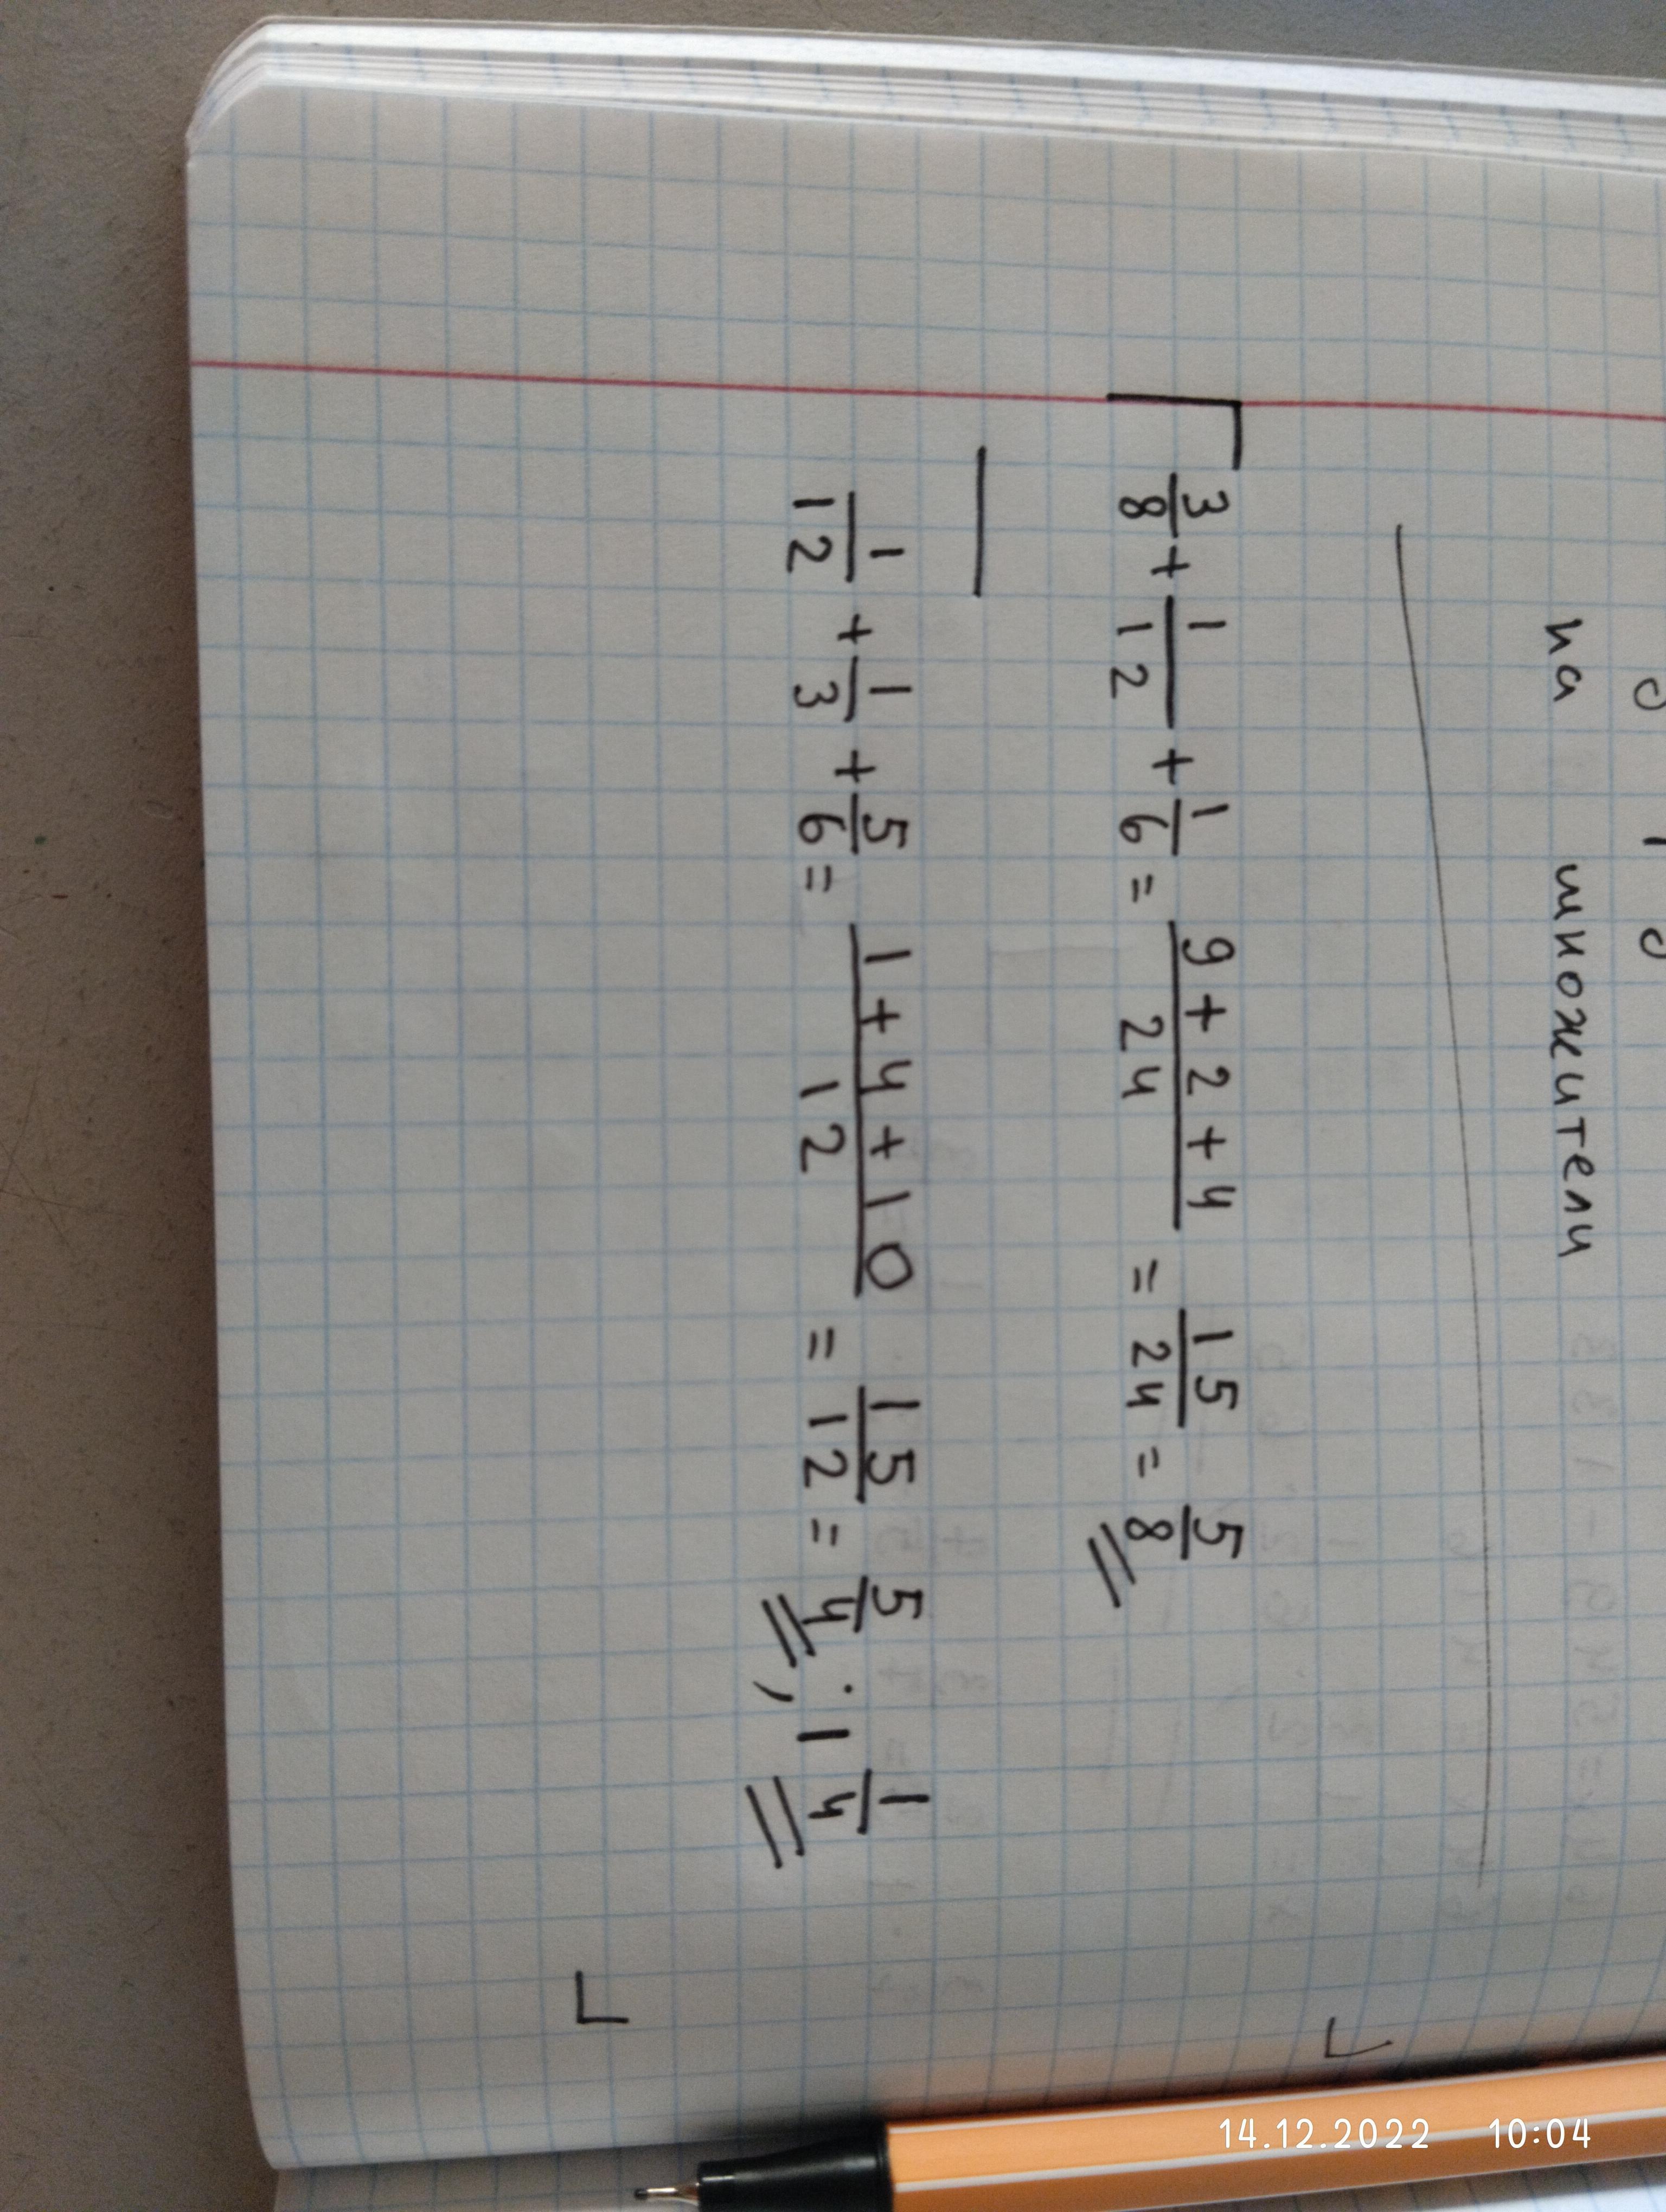 на множители
3/8 + 1/12 + 1/6 = (9+2+4)/24 = 15/24 = 5/8
1/12 + 1/3 + 5/6 = (1+4+10)/12 = 15/12 = 5/4 ; 1 1/4
14.12.2022 10:04